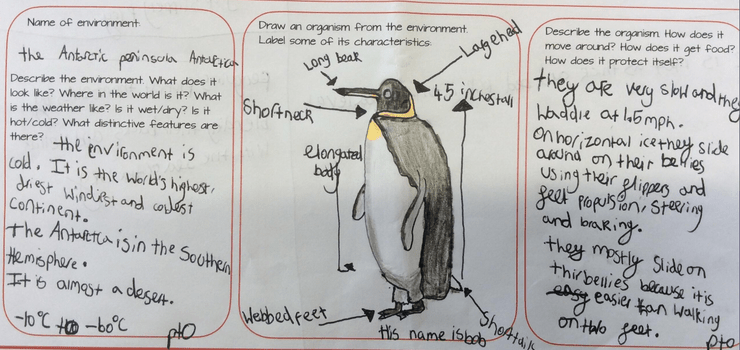 Name of environment:
the Antarctic peninsula Antarctica
Describe the environment. What does it
look like? Where in the world is it? What
is the weather like? Is it wet/dry? Is it
hot/cold? What distinctive features are
there?
the environment is
cold. It is the world's highest,
driest windiest and coldest
continent.
The Antarctica is in the Southern
Hemisphere.
It is almost a desert.
-10°C to -60°C
pto
Draw an organism from the environment.
Label some of its characteristics.
Long beak
Large head
Short neck
45 inches tall
elongated
body
Webbed feet
Short tail
His name is bob
Describe the organism. How does it
move around? How does it get food?
How does it protect itself?
they are very slow and they
Waddle at 1.5 mph.
On horizontal ice they slide
around on their bellies
using their flippers and
feet propulsion, steering
and braking.
they mostly slide on
thir bellies because it is
easy easier than walking
on two feet.
pto